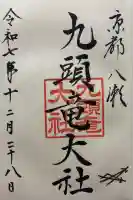 京都八瀬
九頭竜大社
令和七年十二月二十八日
九頭竜
大社